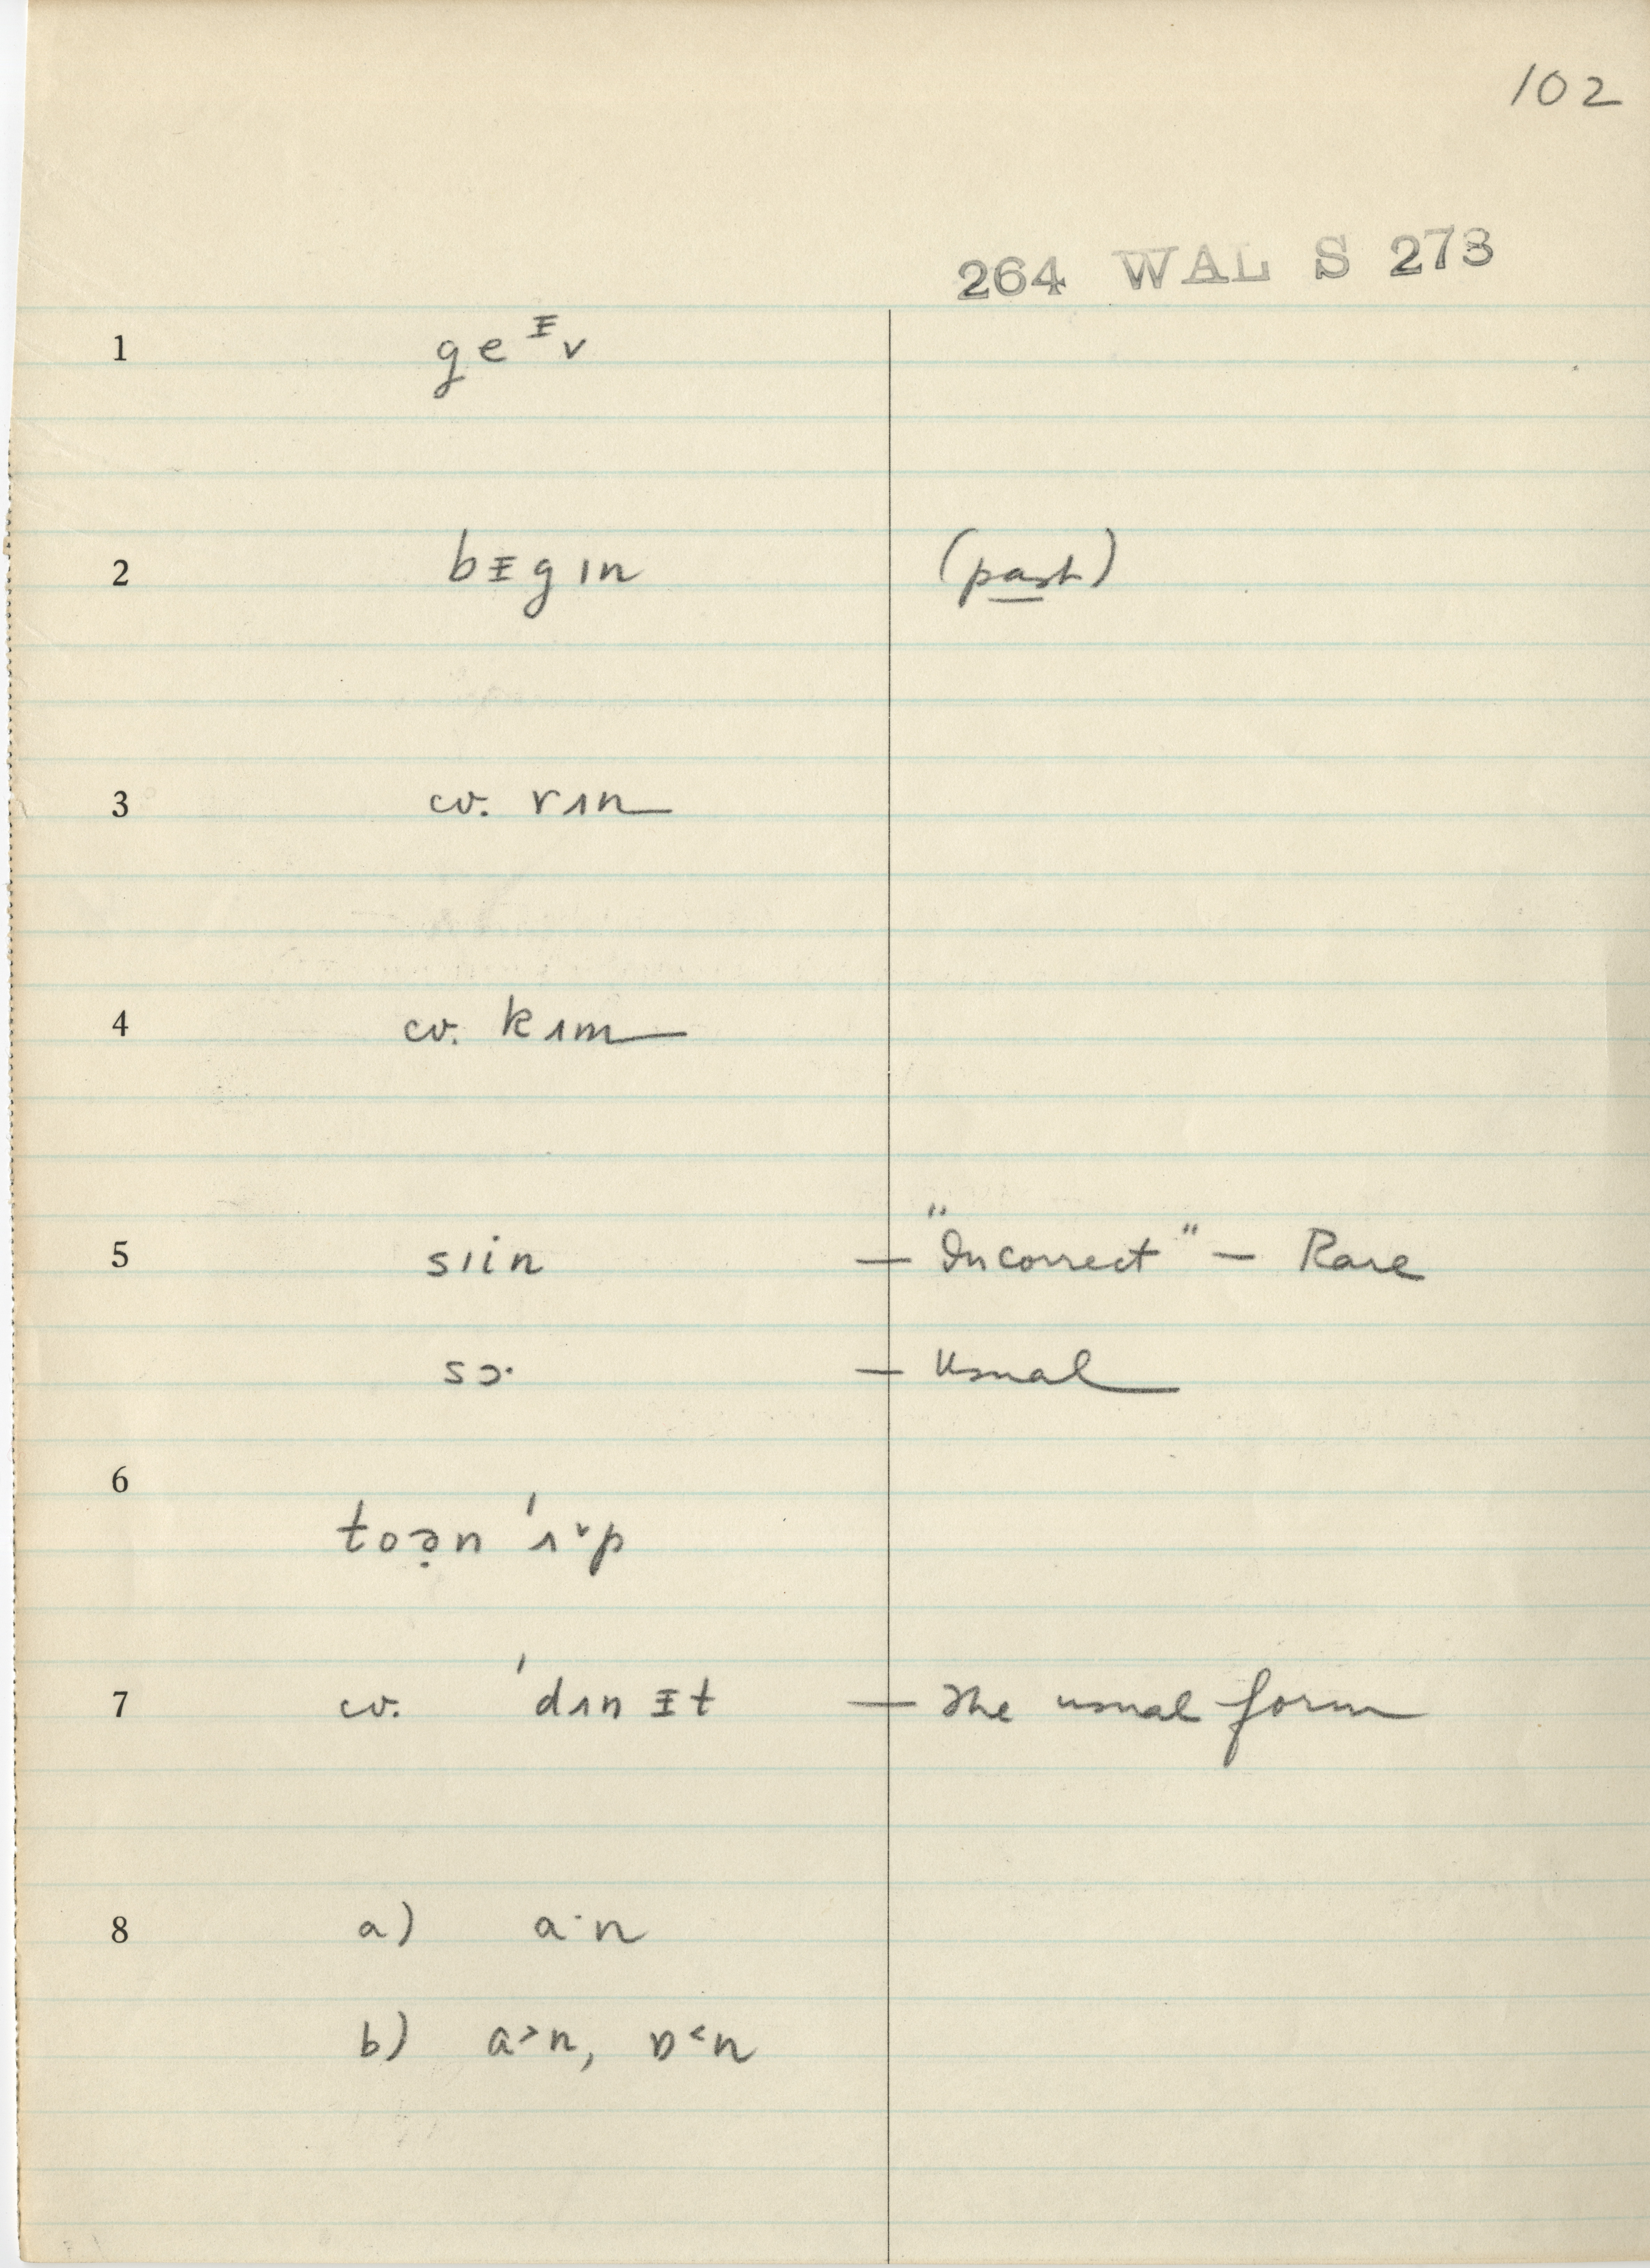 102
264 WAL S 273
1 geᵻv
2 bᵻgɪn (past)
3 cv. rɪn
4 cv. kɪm
5 sɪin — "Incorrect" — Rare
sɔ· — Usual
6
toə̣n 'ʌ˅p
7 cv. 'dɪnᵻt — The usual form
8 a) a·n
b) a˃n, ɒ˂n